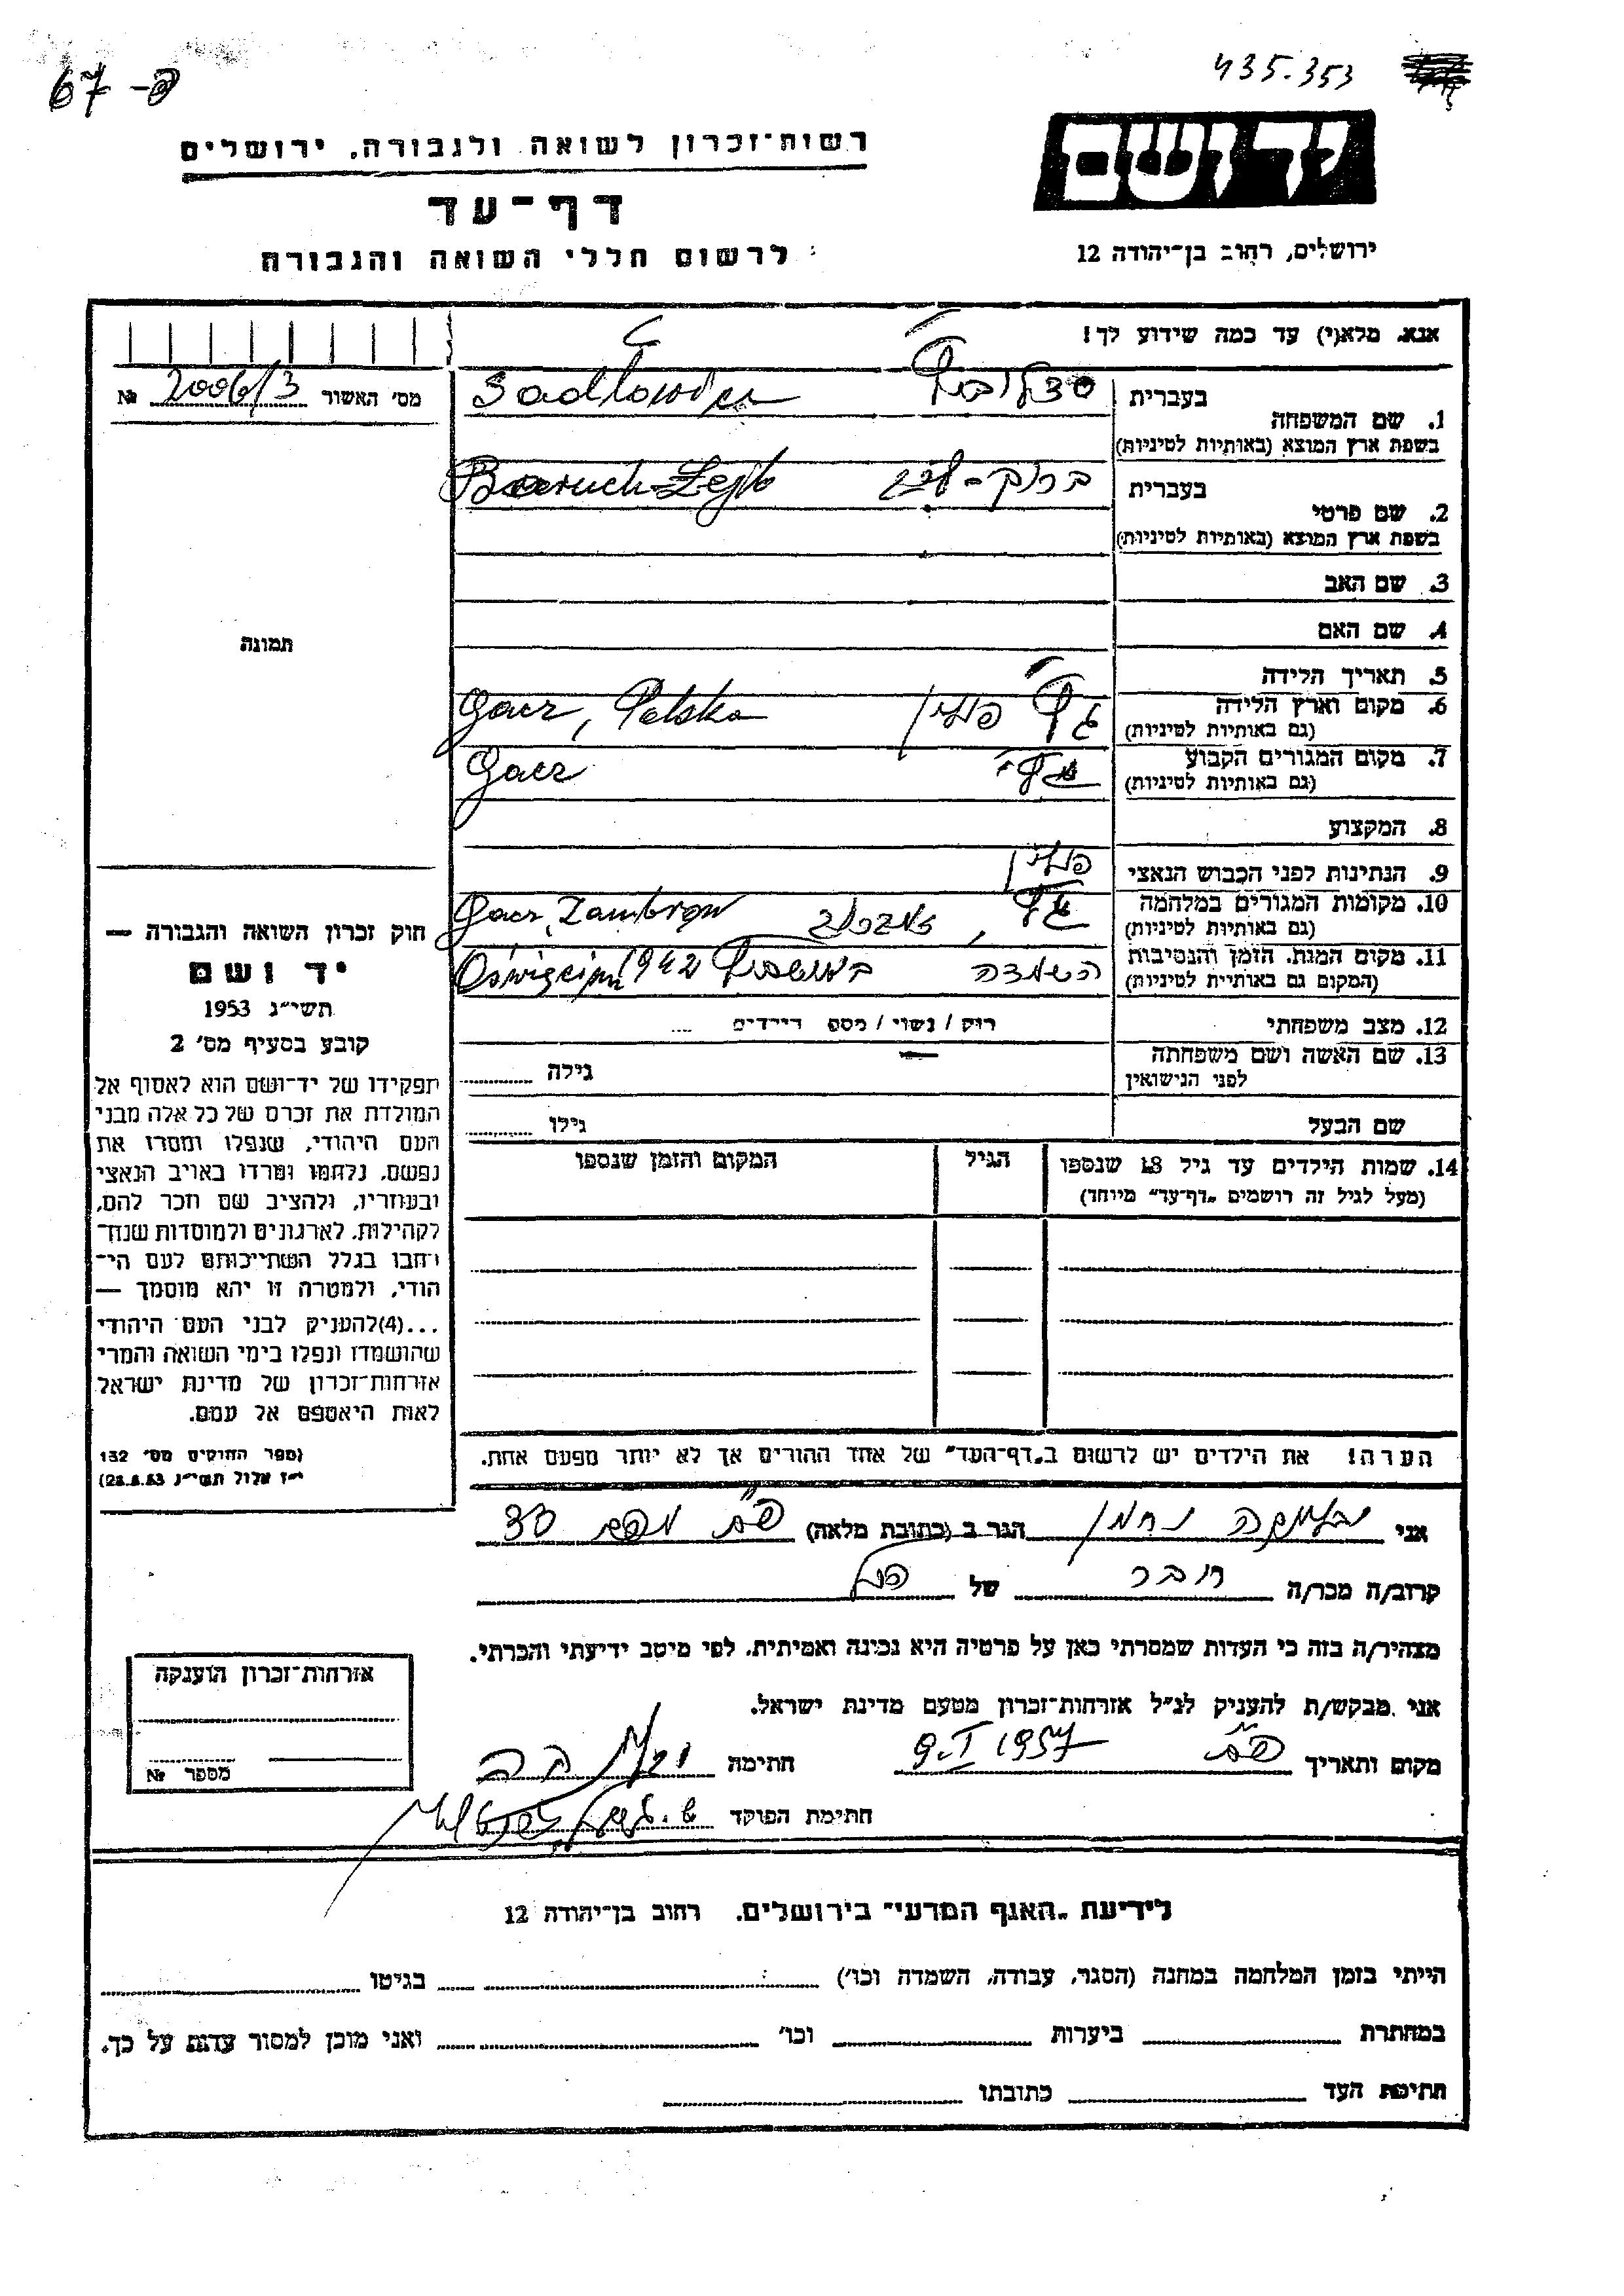 67 -פ
435.353
רשות־זכרון לשואה ולגבורה, ירושלים
דף־עד
לרשום חללי השואה והגבורה
יד ושם
ירושלים, רחוב בן־יהודה 12
אנא, מלא(י) עד כמה שידוע לך!
מס׳ האשור № 2006/3
1. שם המשפחה
בעברית
בשפת ארץ המוצא (באותיות לטיניות)
Sadłowicz
2. שם פרטי
בעברית ברוך-לייב
בשפת ארץ המוצא (באותיות לטיניות)
Baruch-Lejb
3. שם האב
4. שם האם
5. תאריך הלידה
6. מקום וארץ הלידה
(גם באותיות לטיניות)
פולין Gacz, Polska
7. מקום המגורים הקבוע
(גם באותיות לטיניות)
Gacz
8. המקצוע
9. הנתינות לפני הכבוש הנאצי פולין
10. מקומות המגורים במלחמה
(גם באותיות לטיניות)
Gacz, Zambrow
11. מקום המות, הזמן והנסיבות
(המקום גם באותיית לטיניות)
השמדה באושביץ 1942 Oświęcim
12. מצב משפחתי רוק / נשוי / מספ הילדים
13. שם האשה ושם משפחתה
לפני הנישואין
גילה
שם הבעל
גילו
14. שמות הילדים עד גיל 18 שנספו
(מעל לגיל זה רושמים „דף־עד״ מיוחד)
הגיל
המקום והזמן שנספו
הערה! את הילדים יש לרשום ב„דף־העד״ של אחד ההורים אך לא יותר מפעם אחת.
תמונה
חוק זכרון השואה והגבורה —
יד ושם
תשי״ג 1953
קובע בסעיף מס׳ 2
תפקידו של יד־ושם הוא לאסוף אל
המולדת את זכרם של כל אלה מבני
העם היהודי, שנפלו ומסרו את
נפשם, נלחמו ומרדו באויב הנאצי
ובעוזריו, ולהציב שם וזכר להם,
לקהילות, לארגונים ולמוסדות שנח־
רבו בגלל השתייכותם לעם הי־
הודי, ולמטרה זו יהא מוסמך —
...(4)להעניק לבני העם היהודי
שהושמדו ונפלו בימי השואה והמרי
אזרחות־זכרון של מדינת ישראל
לאות היאספם אל עמם.
(ספר החוקים מס׳ 132
י״ז אלול תשי״ג 28.8.53)
אני נחמן הגר ב (כתובת מלאה)
קרוב/ה מכר/ה חבר של הנ״ל
מצהיר/ה בזה כי העדות שמסרתי כאן על פרטיה היא נכונה ואמיתית, לפי מיטב ידיעתי והכרתי.
אני מבקש/ת להעניק לנ״ל אזרחות־זכרון מטעם מדינת ישראל.
מקום ותאריך 9.I 1957 חתימה
חתימת הפוקד
אזרחות־זכרון הוענקה
מספר №
לידיעת „האגף המדעי״ בירושלים, רחוב בן־יהודה 12
הייתי בזמן המלחמה במחנה (הסגר, עבודה, השמדה וכו׳) בגיטו
במחתרת ביערות וכו׳ ואני מוכן למסור עדות על כך.
חתימת העד כתובתו